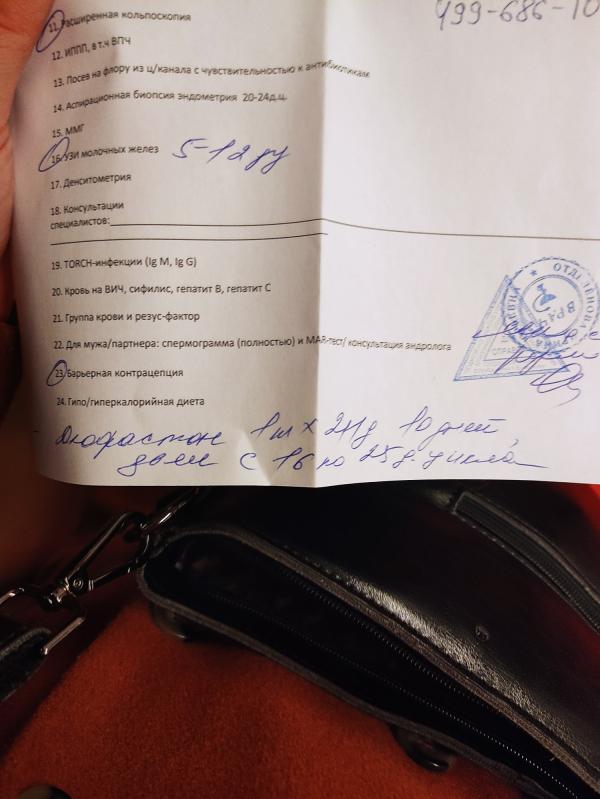 499-686-10
11. Расширенная кольпоскопия
12. ИППП, в т.ч ВПЧ
13. Посев на флору из ц/канала с чувствительностью к антибиотикам
14. Аспирационная биопсия эндометрия 20-24д.ц.
15. ММГ
16. УЗИ молочных желез 5-12 дц
17. Денситометрия
18. Консультации
специалистов:
19. TORCH-инфекции (Ig M, Ig G)
20. Кровь на ВИЧ, сифилис, гепатит В, гепатит С
21. Группа крови и резус-фактор
22. Для мужа/партнера: спермограмма (полностью) и МАR-тест/ консультация андролога
23. Барьерная контрацепция
24. Гипо/гиперкалорийная диета
Дюфастон 1 т х 2 р/д 10 дней,
с 16 по 25 д. цикла
ВРАЧ